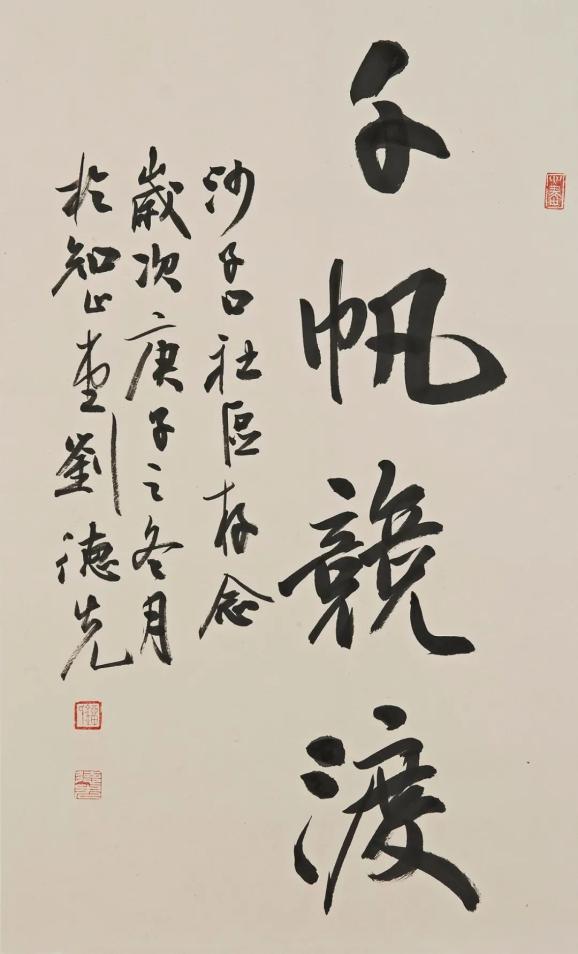 千帆競渡
沙子口社區存念
歲次庚子之冬月
於知止堂劉德先